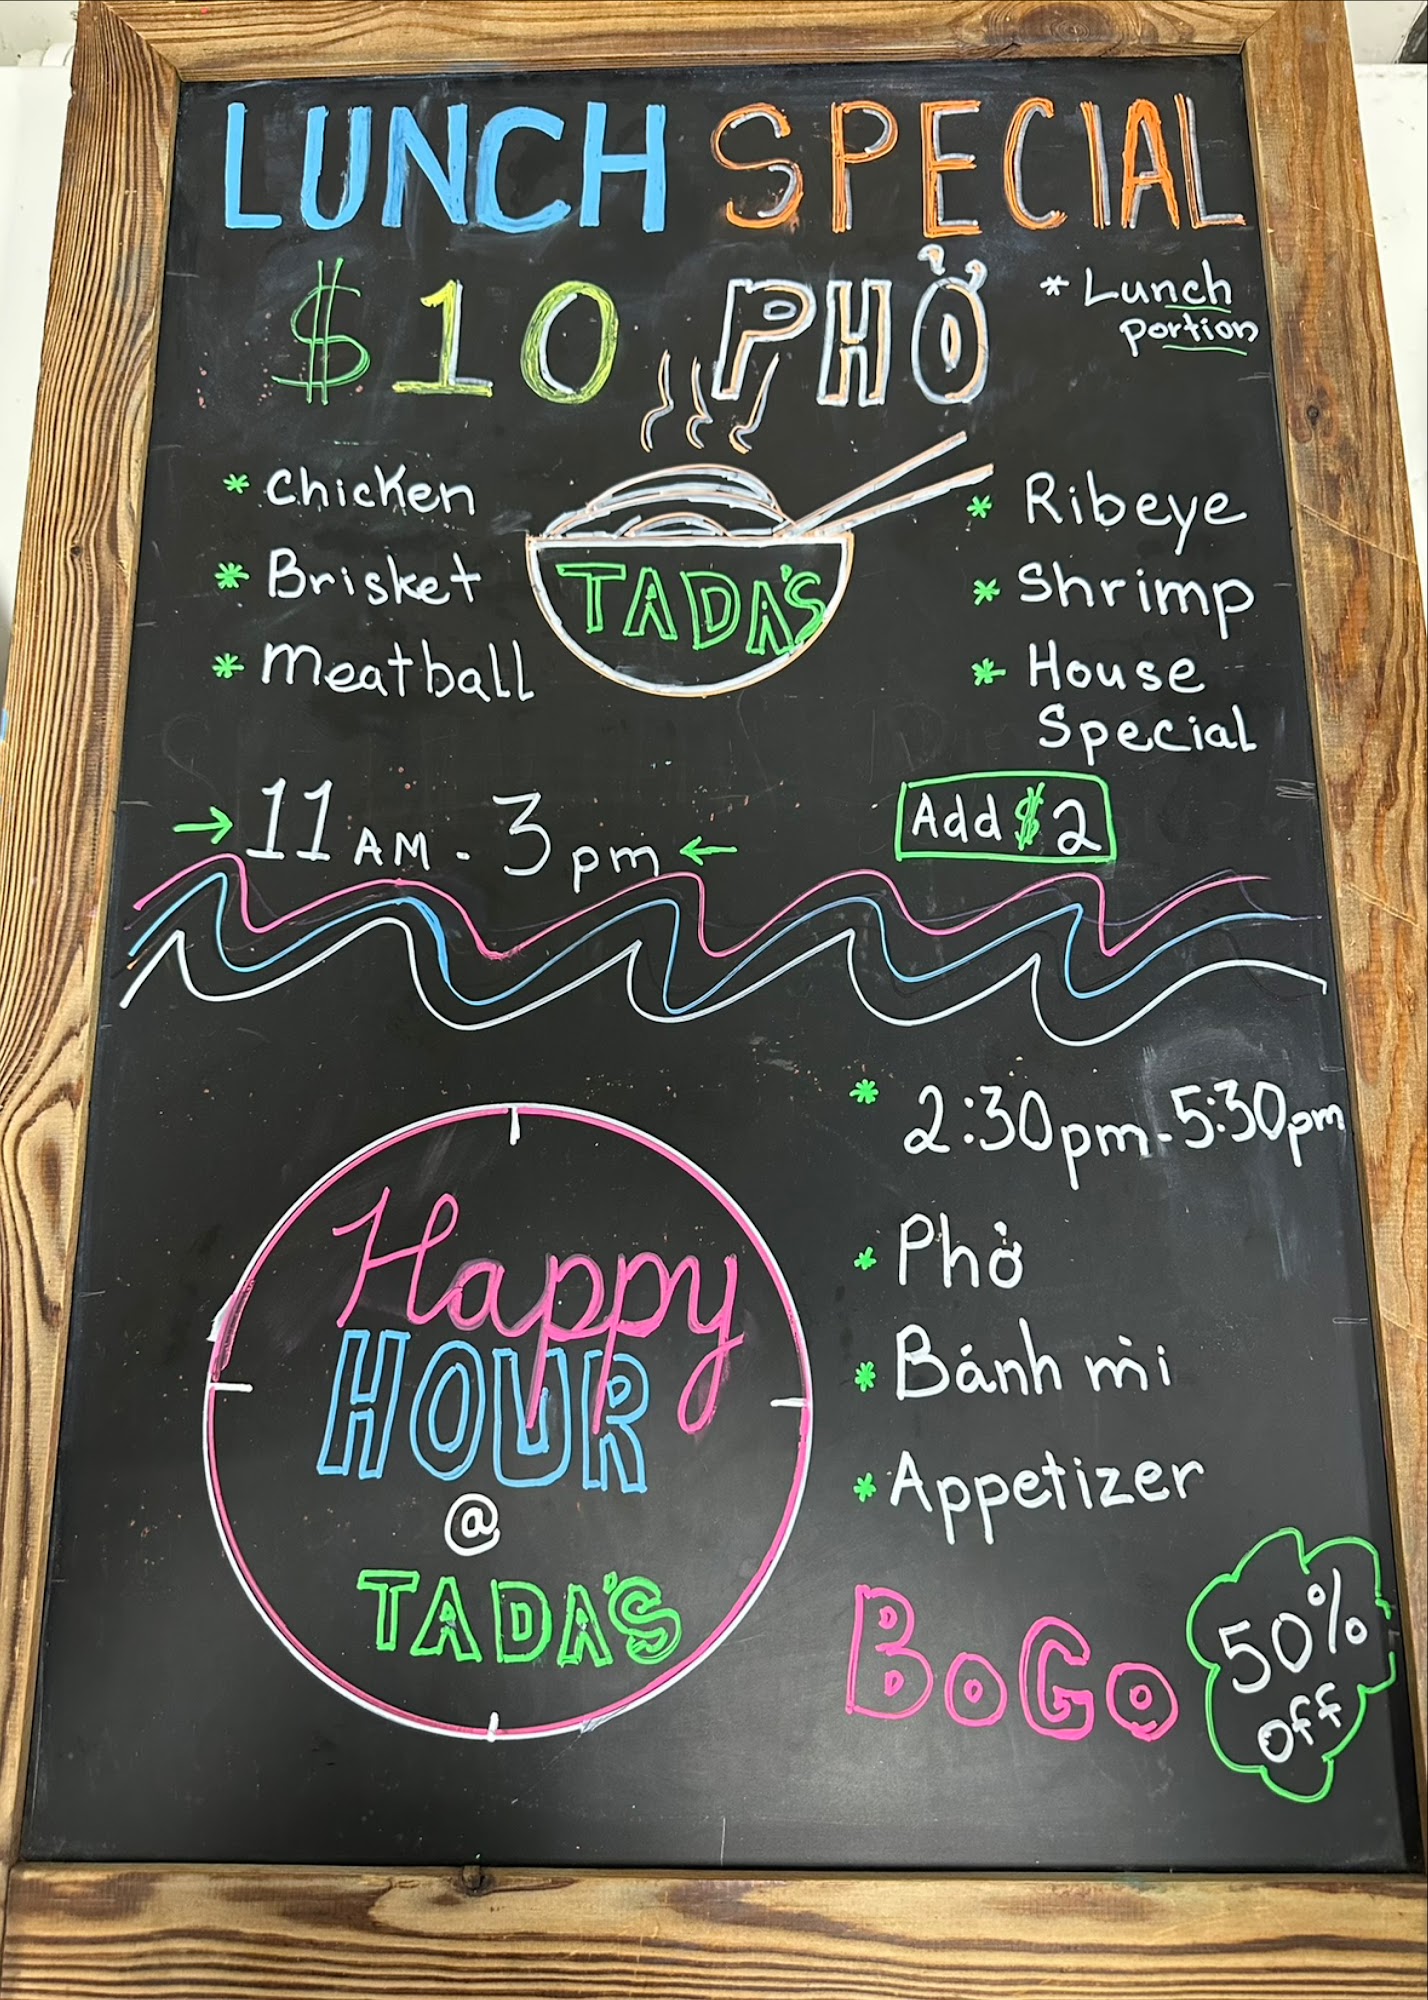 LUNCH SPECIAL
$10 PHỞ
* Lunch
portion
* Chicken
* Brisket
* Meatball
TADA'S
* Ribeye
* Shrimp
* House
Special
→ 11 AM - 3 pm ←
Add $2
Happy
HOUR
@
TADA'S
* 2:30pm - 5:30pm
* Phở
* Bánh mì
* Appetizer
BOGO
50%
off